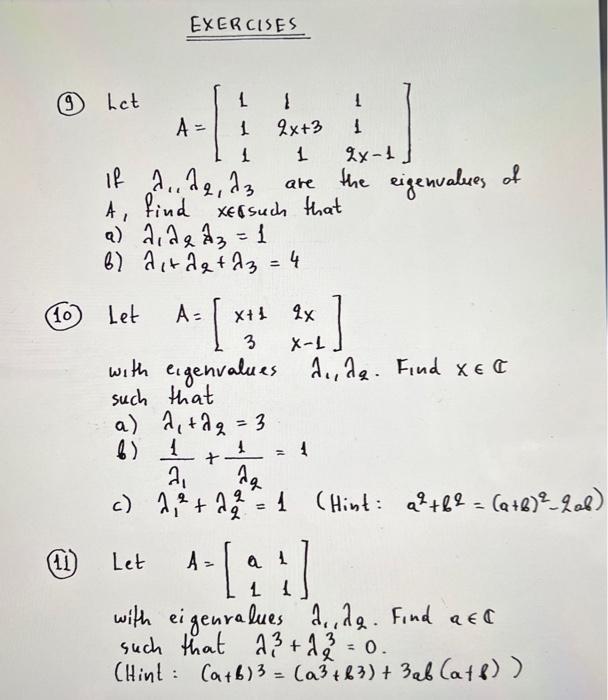 EXERCISES
⑨ Let
A = [ 1 1 1
1 2x+3 1
1 1 2x-1 ]
If λ₁, λ₂, λ₃ are the eigenvalues of
A, find x∈ℂ such that
a) λ₁λ₂λ₃ = 1
b) λ₁+λ₂+λ₃ = 4
⑩ Let A = [ x+1 2x
3 x-1 ]
with eigenvalues λ₁, λ₂. Find x ∈ ℂ
such that
a) λ₁+λ₂ = 3
b) 1/λ₁ + 1/λ₂ = 1
c) λ₁² + λ₂² = 1 (Hint: a²+b² = (a+b)²-2ab)
⑪ Let A = [ a 1
1 1 ]
with eigenvalues λ₁, λ₂. Find a∈ℂ
such that λ₁³ + λ₂³ = 0.
(Hint: (a+b)³ = (a³+b³) + 3ab(a+b))